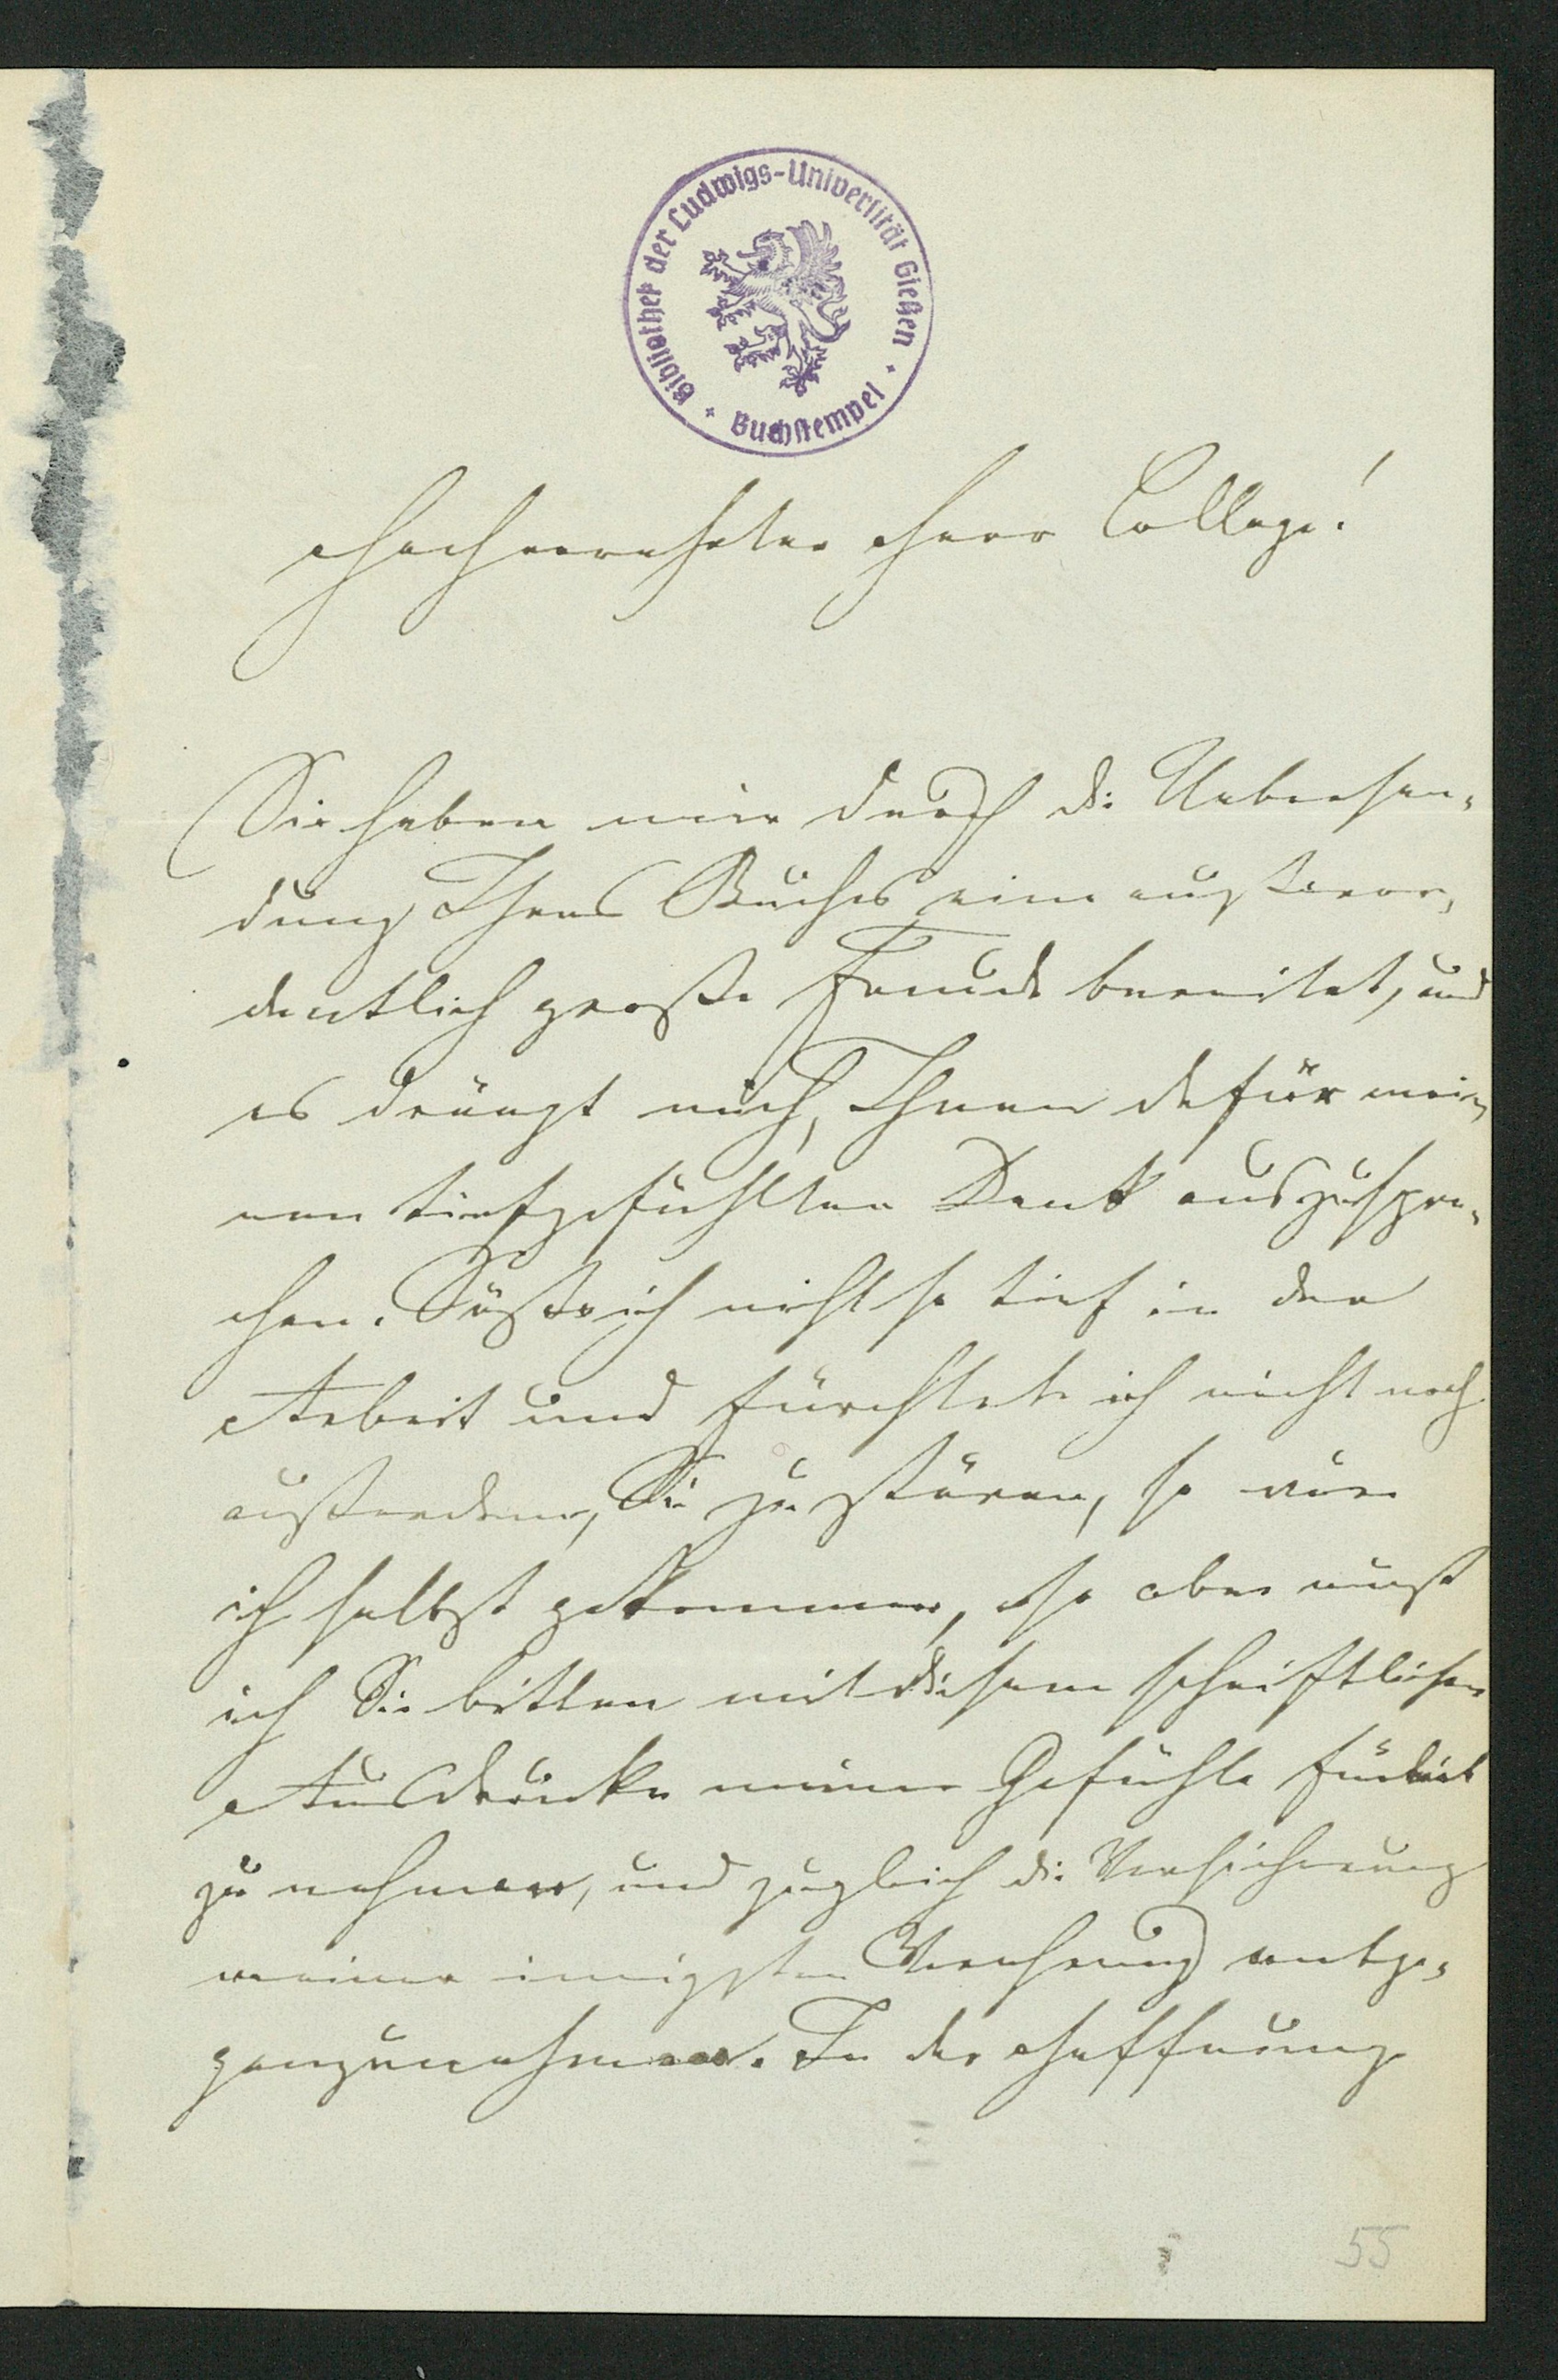 Bibliothek der Ludwigs-Universität Gießen
Buchstempel
Hochverehrter Herr College!
Sie haben mir durch die Uebersen-
dung Ihres Buches eine außeror-
dentlich große Freude bereitet, und
es drängt mich, Ihnen dafür mei-
nen tiefgefühlten Dank auszuspre-
chen. Säße ich nicht so tief in der
Arbeit und fürchtete ich nicht noch
außerdem, Sie zu stören, so wäre
ich selbst gekommen, so aber muß
ich Sie bitten mit diesem schriftlichen
Ausdrucke meiner Gefühle fürlieb
zu nehmen, und zugleich die Versicherung
meiner innigsten Verehrung entge-
genzunehmen. In der Hoffnung
55